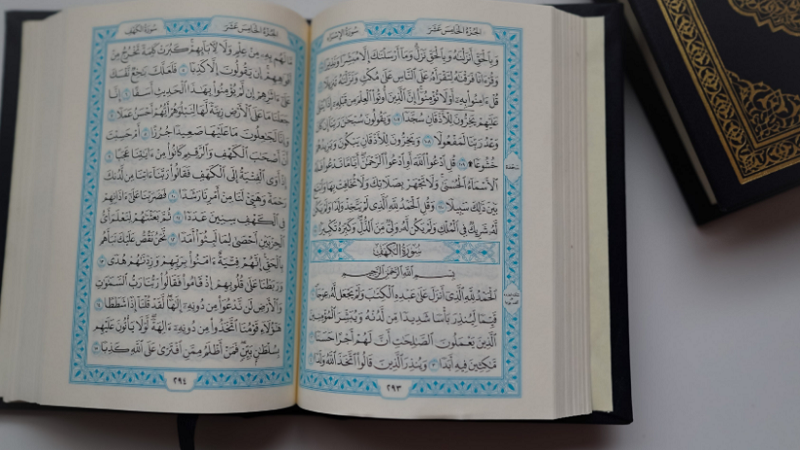 الجزء الخامس عشر
سورة الإسراء
وَبِالْحَقِّ أَنزَلْنَاهُ وَبِالْحَقِّ نَزَلَ وَمَا أَرْسَلْنَاكَ إِلَّا مُبَشِّرًا وَنَذِيرًا ١٠٥
وَقُرْءَانًا فَرَقْنَاهُ لِتَقْرَأَهُ عَلَى النَّاسِ عَلَى مُكْثٍ وَنَزَّلْنَاهُ تَنزِيلًا ١٠٦
قُلْ ءَامِنُوا بِهِ أَوْ لَا تُؤْمِنُوا إِنَّ الَّذِينَ أُوتُوا الْعِلْمَ مِن قَبْلِهِ إِذَا يُتْلَى
عَلَيْهِمْ يَخِرُّونَ لِلْأَذْقَانِ سُجَّدًا ١٠٧ وَيَقُولُونَ سُبْحَانَ رَبِّنَا إِن كَانَ
وَعْدُ رَبِّنَا لَمَفْعُولًا ١٠٨ وَيَخِرُّونَ لِلْأَذْقَانِ يَبْكُونَ وَيَزِيدُهُمْ
خُشُوعًا ۩ ١٠٩ قُلِ ادْعُوا اللَّهَ أَوِ ادْعُوا الرَّحْمَٰنَ أَيًّا مَّا تَدْعُوا فَلَهُ
الْأَسْمَاءُ الْحُسْنَىٰ وَلَا تَجْهَرْ بِصَلَاتِكَ وَلَا تُخَافِتْ بِهَا وَابْتَغِ
بَيْنَ ذَٰلِكَ سَبِيلًا ١١٠ وَقُلِ الْحَمْدُ لِلَّهِ الَّذِي لَمْ يَتَّخِذْ وَلَدًا وَلَمْ يَكُن
لَّهُ شَرِيكٌ فِي الْمُلْكِ وَلَمْ يَكُن لَّهُ وَلِيٌّ مِّنَ الذُّلِّ وَكَبِّرْهُ تَكْبِيرًا ١١١
سورة الكهف
بِسْمِ اللَّهِ الرَّحْمَٰنِ الرَّحِيمِ
الْحَمْدُ لِلَّهِ الَّذِي أَنزَلَ عَلَىٰ عَبْدِهِ الْكِتَابَ وَلَمْ يَجْعَل لَّهُ عِوَجًا ١
قَيِّمًا لِّيُنذِرَ بَأْسًا شَدِيدًا مِّن لَّدُنْهُ وَيُبَشِّرَ الْمُؤْمِنِينَ
الَّذِينَ يَعْمَلُونَ الصَّالِحَاتِ أَنَّ لَهُمْ أَجْرًا حَسَنًا ٢
مَّاكِثِينَ فِيهِ أَبَدًا ٣ وَيُنذِرَ الَّذِينَ قَالُوا اتَّخَذَ اللَّهُ وَلَدًا ٤
٢٩٣
سورة الكهف
الجزء الخامس عشر
مَّا لَهُم بِهِ مِنْ عِلْمٍ وَلَا لِآبَائِهِمْ كَبُرَتْ كَلِمَةً تَخْرُجُ مِنْ
أَفْوَاهِهِمْ إِن يَقُولُونَ إِلَّا كَذِبًا ٥ فَلَعَلَّكَ بَاخِعٌ نَّفْسَكَ
عَلَىٰ ءَاثَارِهِمْ إِن لَّمْ يُؤْمِنُوا بِهَٰذَا الْحَدِيثِ أَسَفًا ٦ إِنَّا
جَعَلْنَا مَا عَلَى الْأَرْضِ زِينَةً لَّهَا لِنَبْلُوَهُمْ أَيُّهُمْ أَحْسَنُ عَمَلًا ٧
وَإِنَّا لَجَاعِلُونَ مَا عَلَيْهَا صَعِيدًا جُرُزًا ٨ أَمْ حَسِبْتَ
أَنَّ أَصْحَابَ الْكَهْفِ وَالرَّقِيمِ كَانُوا مِنْ ءَايَاتِنَا عَجَبًا ٩
إِذْ أَوَى الْفِتْيَةُ إِلَى الْكَهْفِ فَقَالُوا رَبَّنَا ءَاتِنَا مِن لَّدُنكَ
رَحْمَةً وَهَيِّئْ لَنَا مِنْ أَمْرِنَا رَشَدًا ١٠ فَضَرَبْنَا عَلَىٰ ءَاذَانِهِمْ
فِي الْكَهْفِ سِنِينَ عَدَدًا ١١ ثُمَّ بَعَثْنَاهُمْ لِنَعْلَمَ أَيُّ
الْحِزْبَيْنِ أَحْصَىٰ لِمَا لَبِثُوا أَمَدًا ١٢ نَّحْنُ نَقُصُّ عَلَيْكَ نَبَأَهُم
بِالْحَقِّ إِنَّهُمْ فِتْيَةٌ ءَامَنُوا بِرَبِّهِمْ وَزِدْنَاهُمْ هُدًى ١٣
وَرَبَطْنَا عَلَىٰ قُلُوبِهِمْ إِذْ قَامُوا فَقَالُوا رَبُّنَا رَبُّ السَّمَاوَاتِ
وَالْأَرْضِ لَن نَّدْعُوَا مِن دُونِهِ إِلَٰهًا لَّقَدْ قُلْنَا إِذًا شَطَطًا ١٤
هَٰؤُلَاءِ قَوْمُنَا اتَّخَذُوا مِن دُونِهِ ءَالِهَةً لَّوْلَا يَأْتُونَ عَلَيْهِم
بِسُلْطَانٍ بَيِّنٍ فَمَنْ أَظْلَمُ مِمَّنِ افْتَرَىٰ عَلَى اللَّهِ كَذِبًا ١٥
٢٩٤